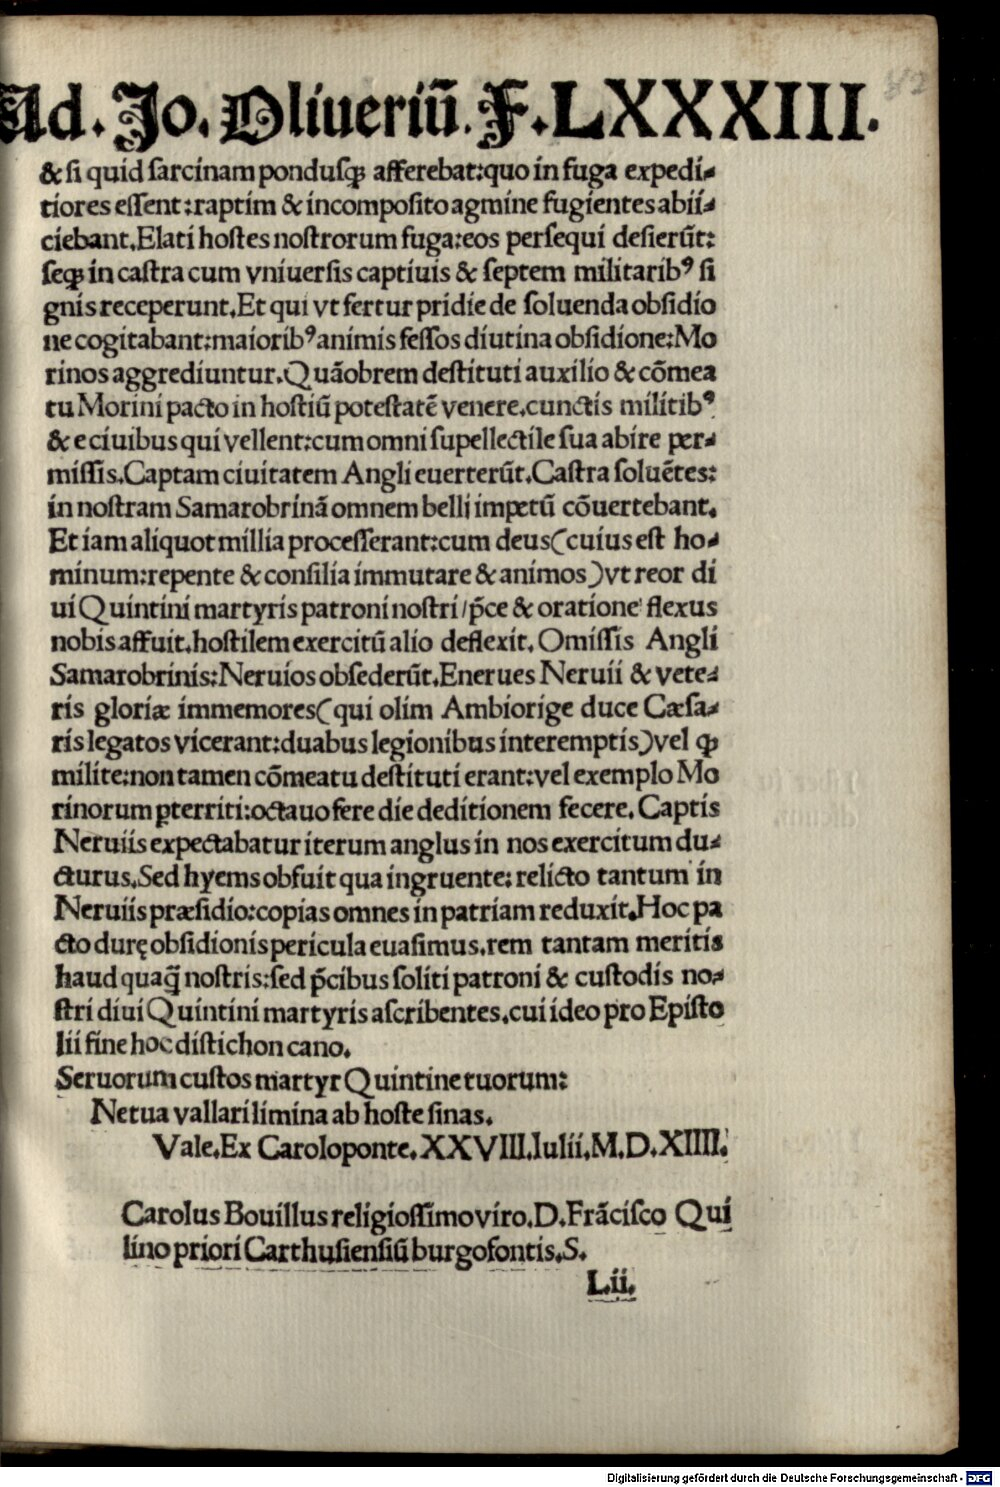 Ad. Jo. Oliueriū. F. LXXXIII.
82
& si quid sarcinam pondusq; afferebat: quo in fuga expedi-
tiores essent: raptim & incomposito agmine fugientes abii-
ciebant. Elati hostes nostrorum fuga: eos persequi desierūt:
seq; in castra cum vniuersis captiuis & septem militarib⁹ si
gnis receperunt. Et qui vt fertur pridie de soluenda obsidio
ne cogitabant: maiorib⁹ animis fessos diutina obsidione: Mo
rinos aggrediuntur. Quāobrem destituti auxilio & cōmea
tu Morini pacto in hostiū potestatē venere. cunctis militib⁹
& e ciuibus qui vellent: cum omni supellectile sua abire per-
missis. Captam ciuitatem Angli euerterūt. Castra soluētes:
in nostram Samarobrinā omnem belli impetū cōuertebant.
Et iam aliquot millia processerant: cum deus (cuius est ho-
minum: repente & consilia immutare & animos) vt reor di
ui Quintini martyris patroni nostri / p̄ce & oratione flexus
nobis affuit. hostilem exercitū alio deflexit. Omissis Angli
Samarobrinis: Neruios obsederūt. Enerues Neruii & vete-
ris gloriæ immemores (qui olim Ambiorige duce Cæsa-
ris legatos vicerant: duabus legionibus interemptis) vel q̳
milite: non tamen cōmeatu destituti erant: vel exemplo Mo
rinorum p̱territi: octauo fere die deditionem fecere. Captis
Neruiis expectabatur iterum anglus in nos exercitum du-
cturus. Sed hyems obfuit qua ingruente: relicto tantum in
Neruiis præsidio: copias omnes in patriam reduxit. Hoc pa
cto durę obsidionis pericula euasimus. rem tantam meritis
haud quaq̄ nostris: sed p̄cibus soliti patroni & custodis no-
stri diui Quintini martyris ascribentes. cui ideo pro Episto
lii fine hoc distichon cano.
Seruorum custos martyr Quintine tuorum:
Ne tua vallari limina ab hoste sinas.
Vale. Ex Caroloponte. XXVIII. Iulii. M. D. XIIII.
Carolus Bouillus religiossimo viro. D. Frācisco Qui
lino priori Carthusiensiū burgofontis. S.
L.ii.
Digitalisierung gefördert durch die Deutsche Forschungsgemeinschaft - DFG